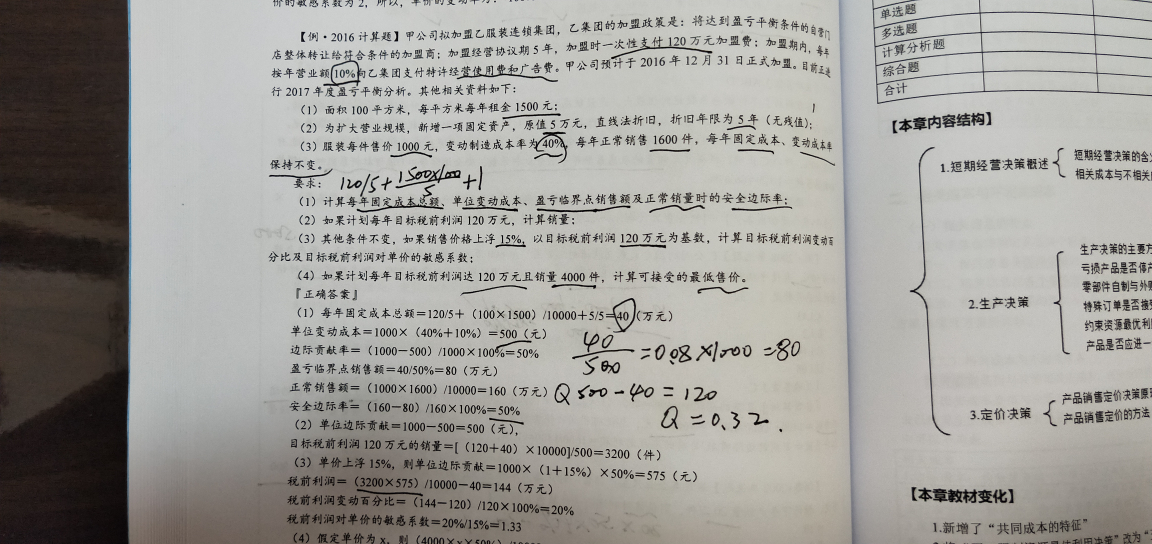 价的敏感系数为 2，所以，单价的变动率为：
【例·2016 计算题】甲公司拟加盟乙服装连锁集团，乙集团的加盟政策是：将达到盈亏平衡条件的自营门
店整体转让给符合条件的加盟商；加盟经营协议期 5 年，加盟时一次性支付 120 万元加盟费；加盟期内，每年
按年营业额 10%向乙集团支付特许经营使用费和广告费。甲公司预计于 2016 年 12 月 31 日正式加盟。目前正进
行 2017 年度盈亏平衡分析。其他相关资料如下：
（1）面积 100 平方米，每平方米每年租金 1500 元；
（2）为扩大营业规模，新增一项固定资产，原值 5 万元，直线法折旧，折旧年限为 5 年（无残值）；
（3）服装每件售价 1000 元，变动制造成本率为 40%，每年正常销售 1600 件，每年固定成本、变动成本率
保持不变。
要求：
120/5+1500×100/5+1
（1）计算每年固定成本总额、单位变动成本、盈亏临界点销售额及正常销量时的安全边际率；
（2）如果计划每年目标税前利润 120 万元，计算销量；
（3）其他条件不变，如果销售价格上浮 15%，以目标税前利润 120 万元为基数，计算目标税前利润变动百
分比及目标税前利润对单价的敏感系数；
（4）如果计划每年目标税前利润达 120 万元且销量 4000 件，计算可接受的最低售价。
『正确答案』
（1）每年固定成本总额＝120/5＋（100×1500）/10000＋5/5＝40（万元）
单位变动成本＝1000×（40%＋10%）＝500（元）
边际贡献率＝（1000－500）/1000×100%＝50%
40/500=0.08×1000=80
盈亏临界点销售额＝40/50%＝80（万元）
正常销售额＝（1000×1600）/10000＝160（万元）
Q500-40=120
安全边际率＝（160－80）/160×100%＝50%
Q=0.32.
（2）单位边际贡献＝1000－500＝500（元），
目标税前利润 120 万元的销量＝[（120＋40）×10000]/500＝3200（件）
（3）单价上浮 15%，则单位边际贡献＝1000×（1＋15%）×50%＝575（元）
税前利润＝（3200×575）/10000－40＝144（万元）
税前利润变动百分比＝（144－120）/120×100%＝20%
税前利润对单价的敏感系数＝20%/15%＝1.33
（4）假定单价为 x，则（4000×x×50%）/10000
单选题
多选题
计算分析题
综合题
合计
【本章内容结构】
1.短期经营决策概述
短期经营决策的含义
相关成本与不相关
2.生产决策
生产决策的主要方
亏损产品是否停产
零部件自制与外购
特殊订单是否接受
约束资源最优利
产品是否应进一
3.定价决策
产品销售定价决策原
产品销售定价的方法
【本章教材变化】
1.新增了“共同成本的特征”